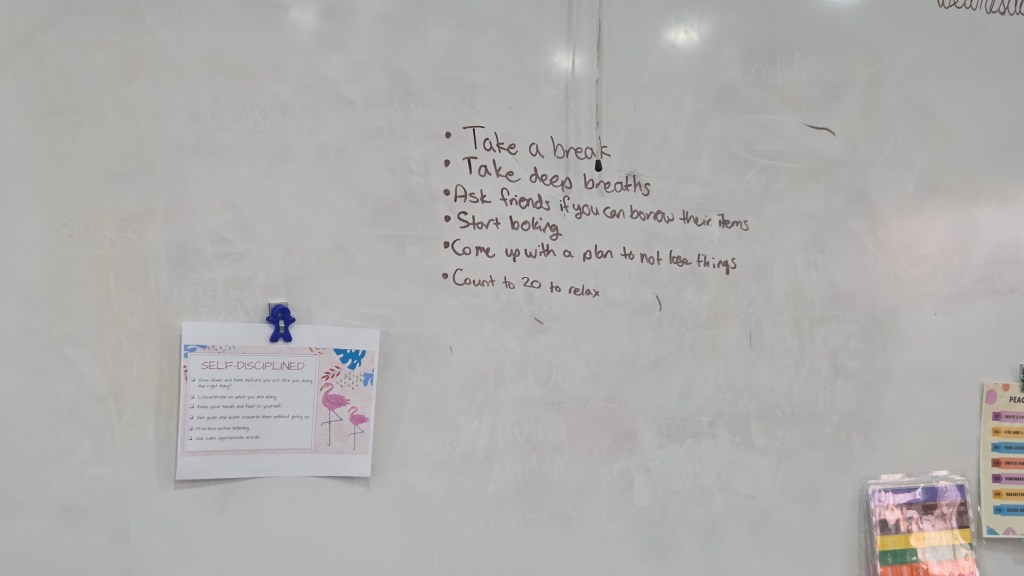 • Take a break
• Take deep breaths
• Ask friends if you can borrow their items
• Start boking
• Come up with a plan to not lose things
• Count to 20 to relax
SELF-DISCIPLINED
Slow down and think before you act. Are you doing
the right thing?
Concentrate on what you are doing
Keep your hands and feet to yourself
Set goals and work towards them without giving up
Practice active listening
Use calm, appropriate words